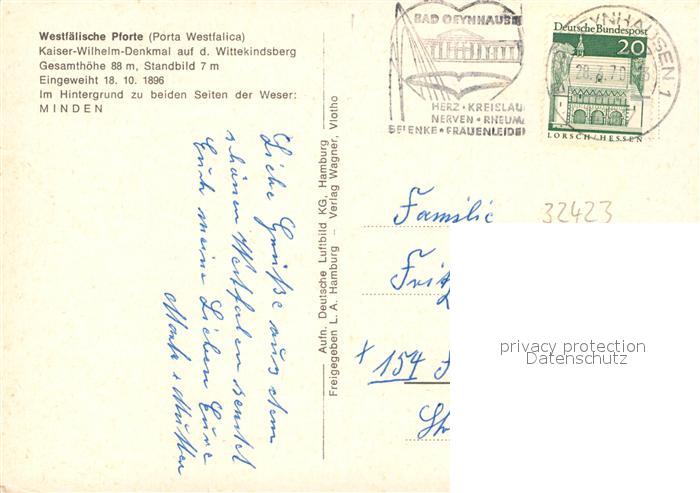 Westfälische Pforte (Porta Westfalica)
Kaiser-Wilhelm-Denkmal auf d. Wittekindsberg
Gesamthöhe 88 m, Standbild 7 m
Eingeweiht 18. 10. 1896
Im Hintergrund zu beiden Seiten der Weser:
MINDEN
Liebe Grüße aus dem
schönen Westfalen sendet
Euch meine Lieben Eure
Mutter
Aufn. Deutsche Luftbild KG, Hamburg
Freigegeben L.A. Hamburg – Verlag Wagner, Vlotho
BAD OEYNHAUSEN
HERZ · KREISLAU
NERVEN · RHEUMA
GELENKE · FRAUENLEIDEN
OEYNHAUSEN 1
Deutsche Bundespost
20
LORSCH/HESSEN
32423
Familie
Fritz
154
privacy protection
Datenschutz